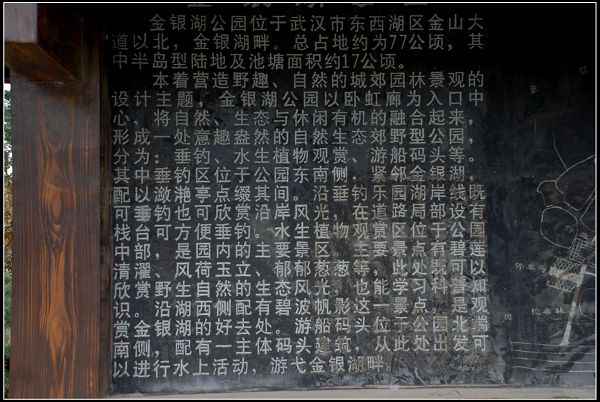 金银湖公园位于武汉市东西湖区金山大
道以北，金银湖畔。总占地约为77公顷，其
中半岛型陆地及池塘面积约17公顷。
本着营造野趣、自然的城郊园林景观的
设计主题，金银湖公园以卧虹廊为入口中
心，将自然、生态与休闲有机的融合起来，
形成一处意趣盎然的自然生态郊野型公园，
分为：垂钓、水生植物观赏、游船码头等。
其中垂钓区位于公园东南侧，紧邻金银湖，
配以潋滟亭点缀其间。沿垂钓乐园湖岸线既
可垂钓也可欣赏沿岸风光，在道路局部设有
栈台可方便垂钓。水生植物观赏区位于公园
中部，是园内的主要景区，主要景点有碧莲
清濯、风荷玉立、郁郁葱葱等，此处既可以
欣赏野生自然的生态风光，也能学习科普知
识。沿湖西侧配有碧波帆影这一景点，是观
赏金银湖的好去处。游船码头位于公园北端
南侧，配有一主体码头建筑，从此处出发可
以进行水上活动，游弋金银湖畔。